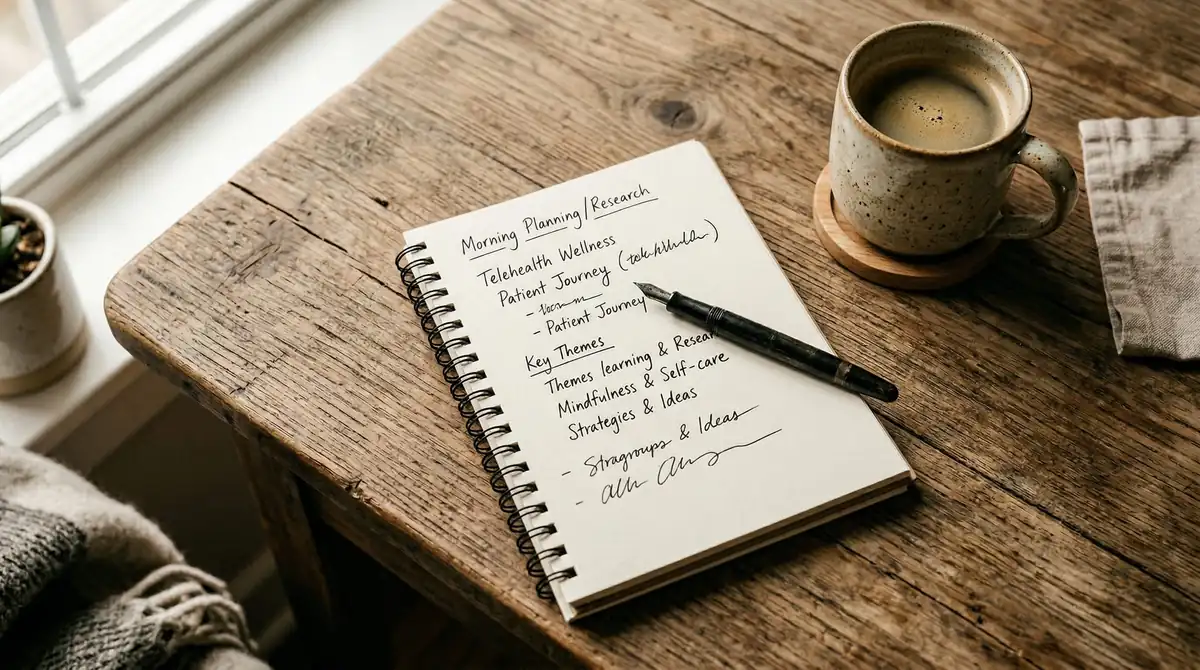 Morning Planning/Research
Telehealth Wellness
Patient Journey
- Patient Journey
Key Themes
Themes learning &
Mindfulness & Self-care
Strategies & Ideas
- Stragroups & Ideas
-